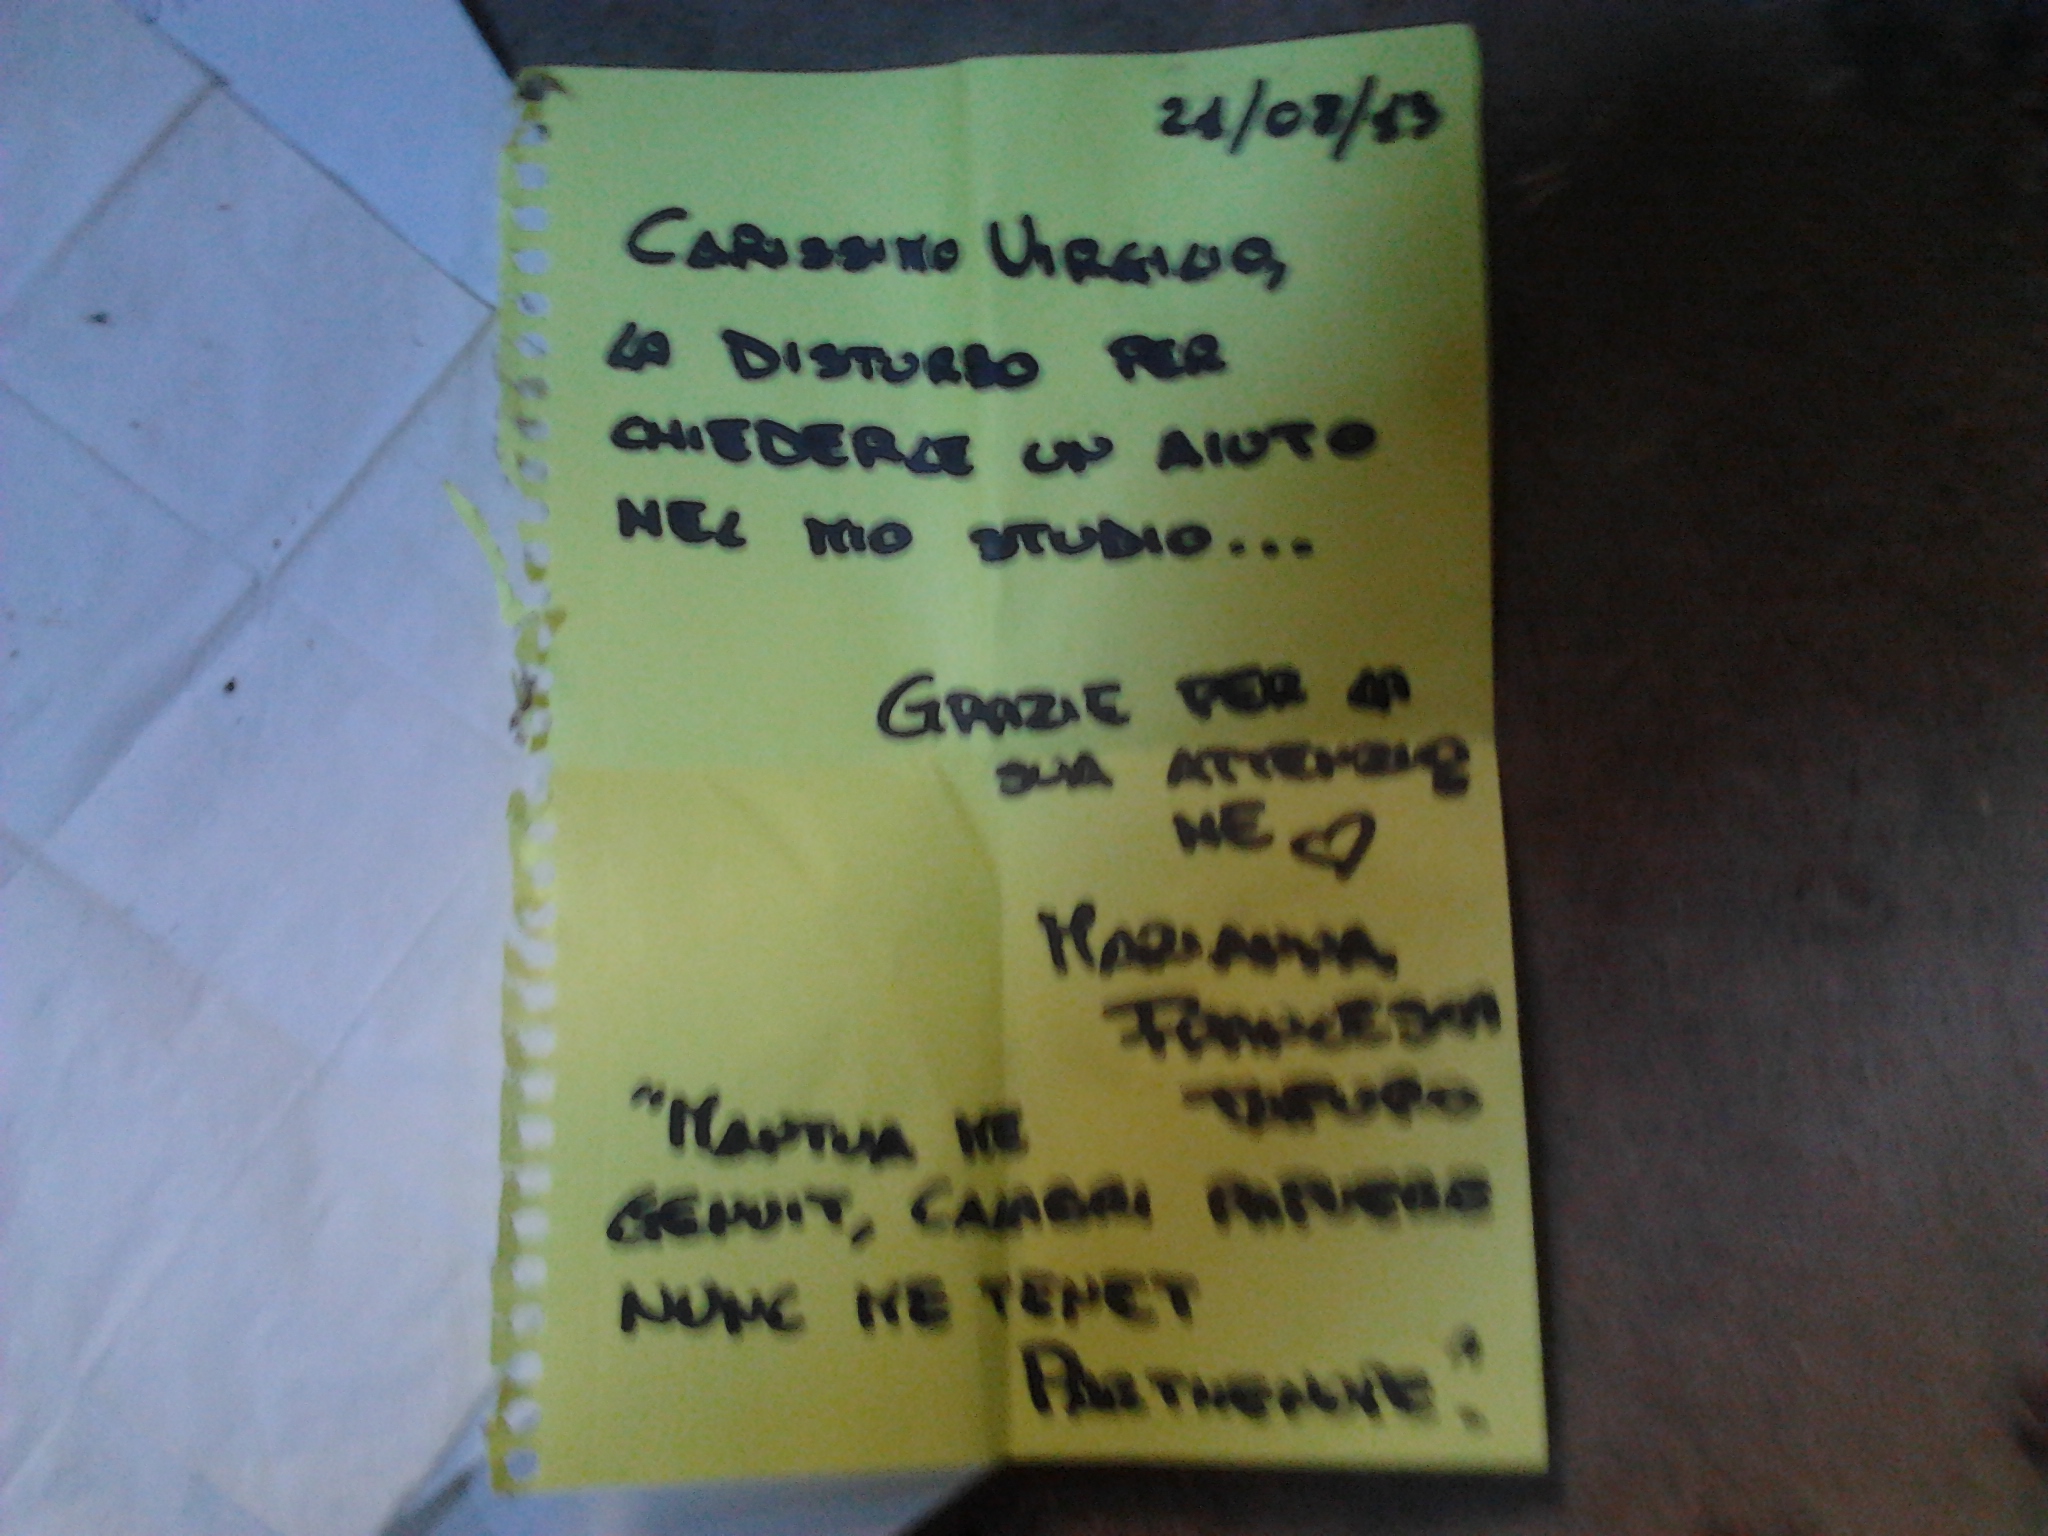 21/08/13
CARISSIMO VIRGILIO,
LA DISTURBO PER
CHIEDERLE UN AIUTO
NEL MIO STUDIO...
GRAZIE PER LA
SUA ATTENZIO
NE ♡
MARIANNA,
FRANCESCA
"MANTUA ME
GENUIT, CALABRI RAPUERE
NUNC ME TENET
PARTHENOPE".